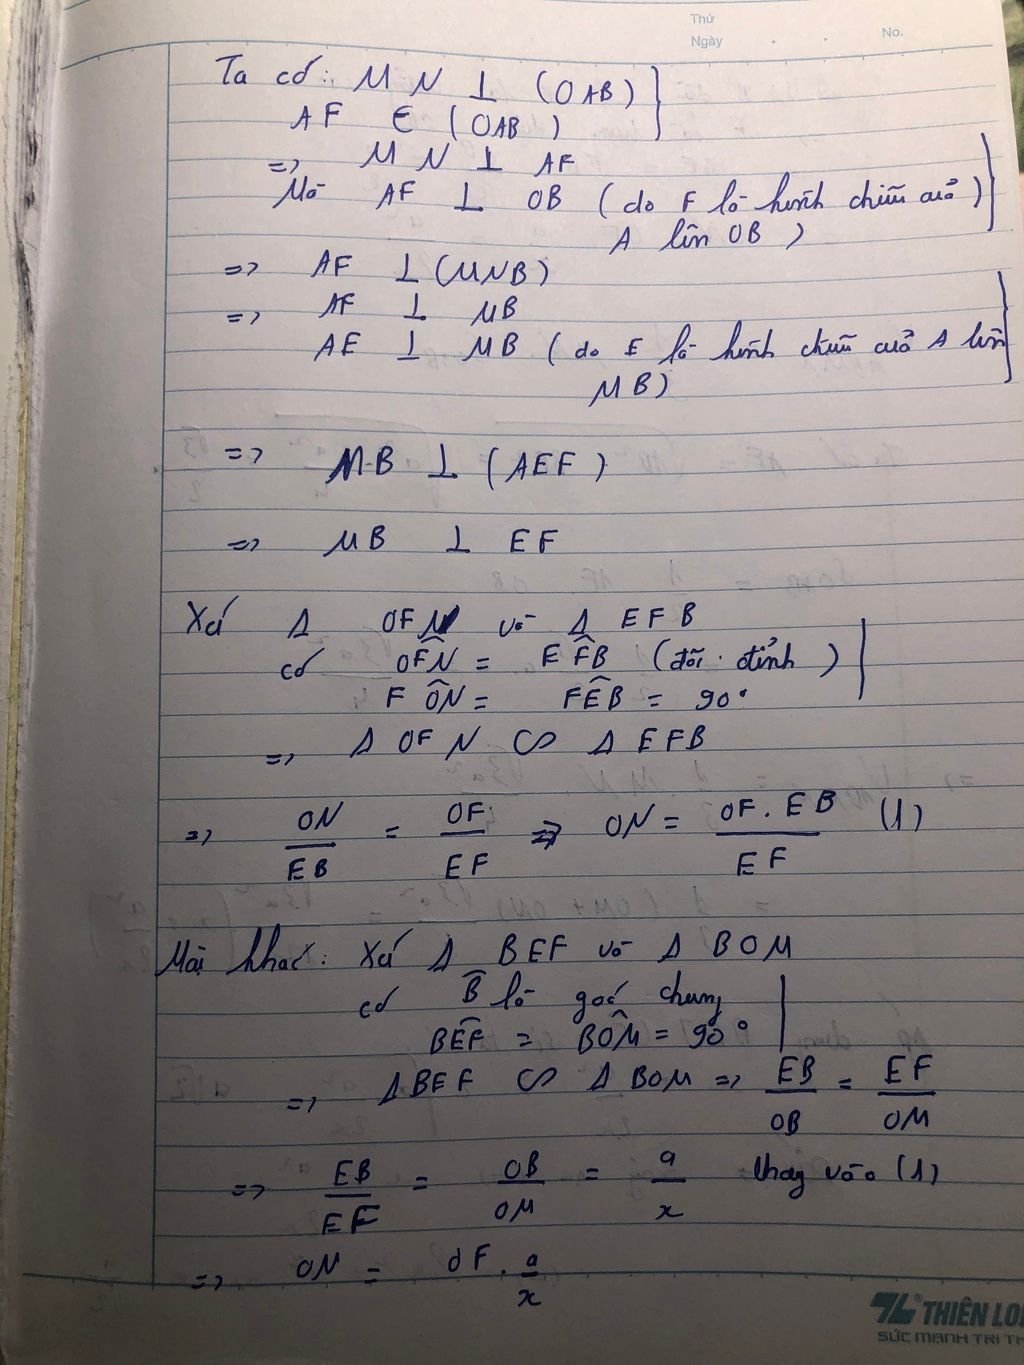 Thứ
Ngày . . No.
Ta có: MN ⊥ (OAB)
AF ∈ (OAB)
=> MN ⊥ AF
Mà AF ⊥ OB (do F là hình chiếu của
A lên OB)
=> AF ⊥ (MNB)
=> AF ⊥ MB
AE ⊥ MB (do E là hình chiếu của A lên
MB)
=> MB ⊥ (AEF)
=> MB ⊥ EF
Xét Δ OFN và Δ EFB
có OF̂N = EF̂B (đối đỉnh)
FÔN = FÊB = 90°
=> Δ OFN ∽ Δ EFB
=> ON/EB = OF/EF => ON = OF.EB/EF (1)
Mặt khác: Xét Δ BEF và Δ BOM
có B̂ là góc chung
BÊF = BÔM = 90°
=> ΔBEF ∽ ΔBOM => EB/OB = EF/OM
=> EB/EF = OB/OM = a/x thay vào (1)
=> ON = OF . a/x
THIÊN LO
SỨC MẠNH TRI TH